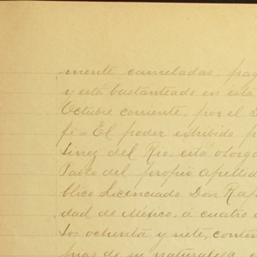 mente canceladas, pag
y está bastanteado en esta
Octubre corriente, por el L
fé = El poder exhibido p
Perez del Rio, está otorga
Pablo del propio apellid
blico Licenciado Don Raf
dad de México, á cuatro d
tos ochenta y siete, conten
pias de su naturaleza